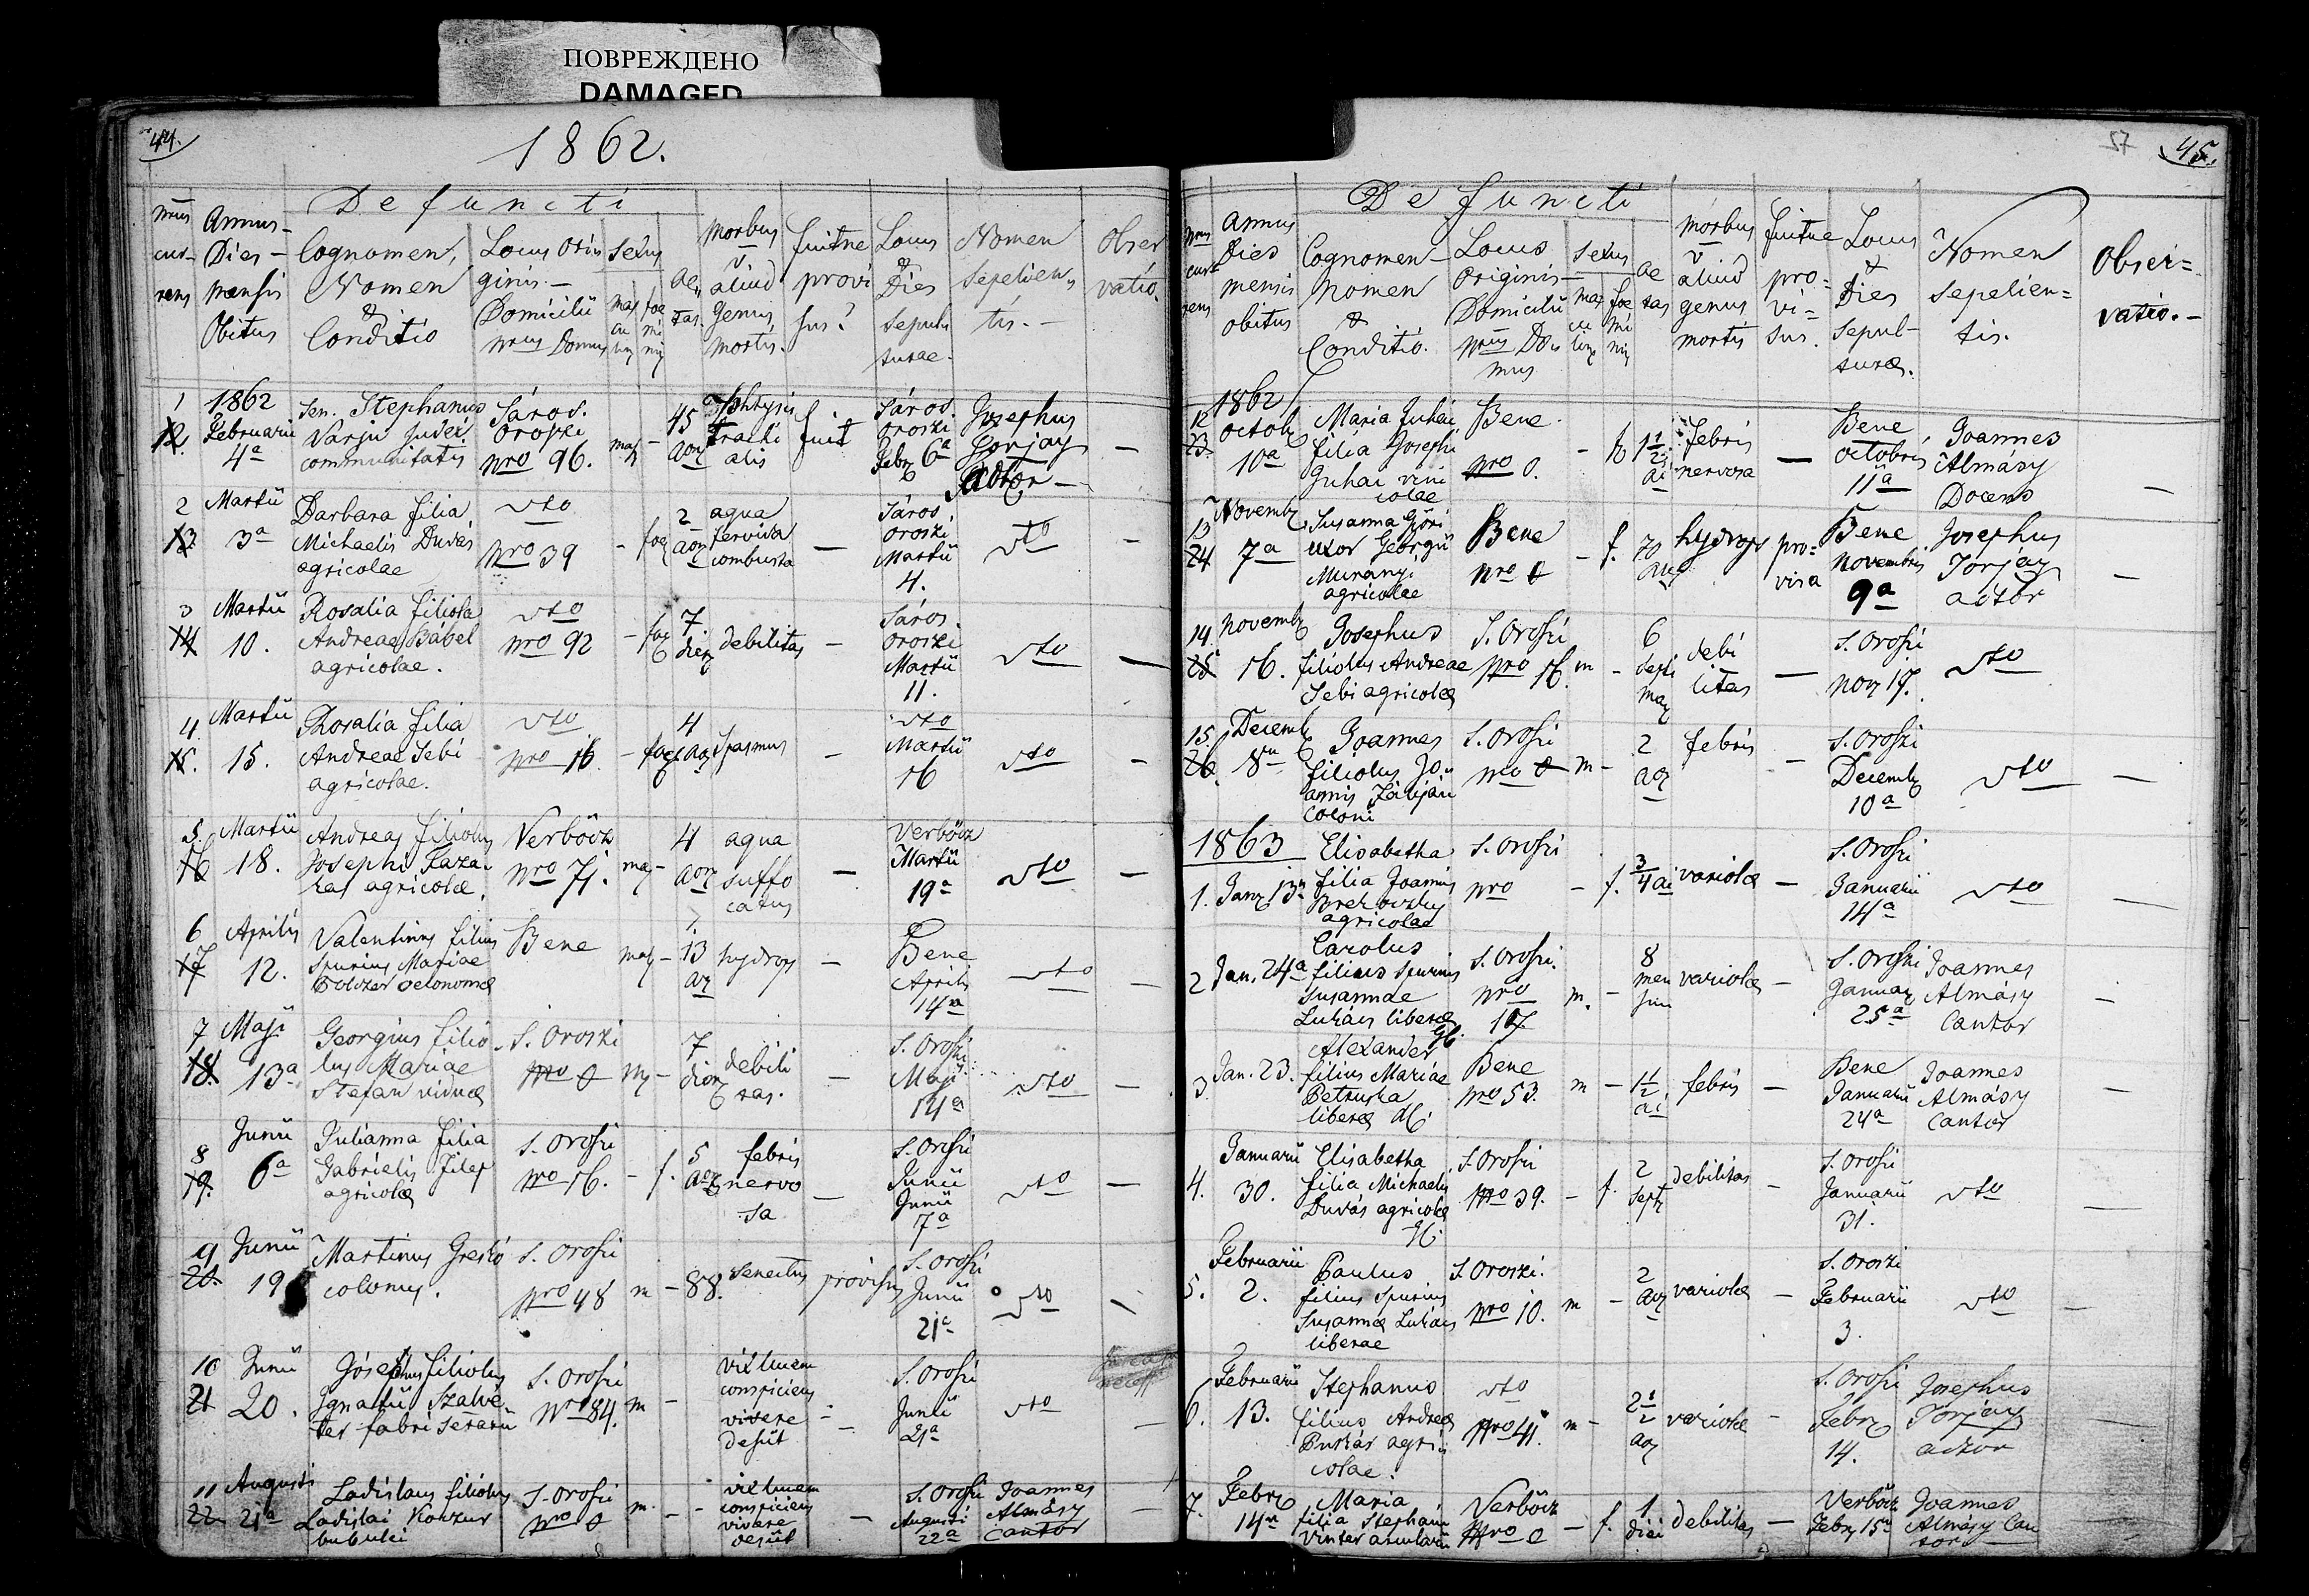 ПОВРЕЖДЕНО
DAMAGED
44.
1862.
Defuncti
Nrus currens
Annus Dies Mensis Obitus
Cognomen, Nomen & Conditio
Locus Originis Domicilii Nrus Domus
Sexus
Aetas
Morbus v aliud genus mortis
fuitne provisus?
Locus & Dies sepulturae
Nomen sepelientis.
Observatio.
1 12. 1862 Februarii 4a
Sen. Stephanus Varju Judex communitatis
Sáros. Oroszi nro 96.
45
fuit
Sáros. Oroszi Febr 6a
Josephus
2 13. Martii 3a
Barbara filia Michaelis Duvás agricolae
vto nro 39
2 aqua fervida combusta
Sáros. Oroszi Martii 4.
vto
3 14 Martii 10.
Rosalia filiola Andreae Babel agricolae.
vto nro 92
7 debilitas
Sáros. Oroszi Martii 11.
vto
4 15. Martii 15.
Rosalia filia Andreae Sebi agricolae.
vto nro 16
4 spasmus
vto Martii 16
vto
5. 16 Martii 18.
Andreas filiolus Josephi agricolae.
Verbőcz nro 71.
4 aqua suffocatus
Verbőcz Martii 19a
vto
6 17 Aprilis 12.
Valentinus filius spurius Mariae
Bene
13 hydrops
Bene Aprilis 14a
vto
7 18. Maji 13a
Georgius filiolus Mariae Stefan viduae
S. Oroszi nro 0
7 debilitas.
S. Oroszi Maji 14a
vto
8 19. Junii 6a
Julianna filia Gabrielis Filep agricolae
S. Oroszi nro 16. f.
5 febris nervosa
S. Oroszi Junii Junii 7a
vto
9 20. Junii 19
Martinus Greskó colonus.
S. Oroszi nro 48 m
88. senectus provisus
S. Oroszi Junii 21a
vto
10 21 Junii 20.
Josephus filiolus Ignatii fabri serarii
S. Oroszi nro 84. m
vix lucem conspiciens vivere desiit
S. Oroszi Junii 21a
vto
11 22 Augusti 21a
Ladislaus filiolus Ladislai bubulci
S. Oroszi nro 0 m.
vix lucem conspiciens vivere desiit
S. Oroszi Augusti 22a
Joannes Almásy Cantor
57 45.
Defuncti
Nrus currens
Annus Dies mensis obitus
Cognomen Nomen & Conditio.
Locus Originis Domicilii Nrus Domus
Sexus
aetas
Morbus v aliud genus mortis
fuitne provisus.
Locus & Dies sepulturae.
Nomen sepelientis.
Observatio.
12 23. 1862 Octobr 10a
Maria Juhai filia Josephi Juhai vinicolae
Bene nro 0.
1 1/2 febris nervosa
Bene octobris 11a
Joannes Almásy Docens
13 24 Novembr 7a
Susanna uxor Georgii Muranyi agricolae
Bene nro 0 f.
70 hydrops provisa
Bene novembris 9a
Josephus Torjay
14. 25 Novembr 16.
Josephus filiolus Andreae Sebi agricolae
S. Oroszi nro 16. m
6 debilitas
S. Oroszi nov 17.
vto
15. 26. Decemb 8a
Joannes filiolus Joannis coloni
S. Oroszi nro 0 m
2 febris
S. Oroszi Decemb 10a
vto
1863
1. Jan 13a
Elisabetha filia Joannis agricolae
S. Oroszi nro f.
3/4 ai variolae
S. Oroszi Januarii 14a
vto
2 Jan. 24a
Carolus filius spurius Susannae Lukács liberae
S. Oroszi. nro 10 m.
8 variolae
S. Oroszi 25a
Joannes Almásy Cantor
3 Jan. 23.
Alexander filius Mariae Petruska liberae
Bene nro 53. m
1 1/2 febris
Bene Januarii 24a
Joannes Almásy Cantor
4. Januarii 30.
Elisabetha filia Michaelis Duvás agricolae
S. Oroszi nro 39. f.
2 debilitas
S. Oroszi Januarii 31.
vto
5. Februarii 2.
Paulus filius spurius Susannae Lukács liberae
S. Oroszi. nro 10. m
2 variolae
S. Oroszi Februarii 3.
vto
6. Februarii 13.
Stephanus filius Andreae agricolae.
vto nro 41. m
2 1/2 variolae
S. Oroszi Febr 14.
Josephus Torjay
7. Febr 14a
Maria filia Stephani
Verbőcz nro 0 f.
1 diei debilitas
Verbőcz Febr 15a
Joannes Almásy Cantor